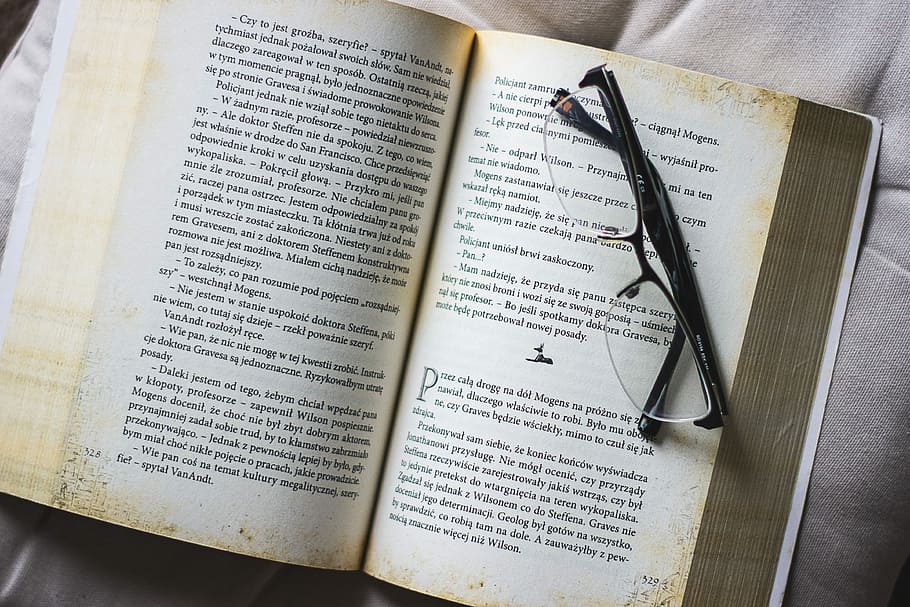 – Czy to jest groźba, szeryfie? – spytał VanAndt, na-
tychmiast jednak pożałował swoich słów. Sam nie wiedział,
dlaczego zareagował w ten sposób. Ostatnią rzeczą, jakiej
w tym momencie pragnął, było jednoznaczne opowiedzenie
się po stronie Gravesa i świadome prowokowanie Wilsona.
Policjant jednak nie wziął sobie tego nietaktu do serca.
– W żadnym razie, profesorze – powiedział niewzruszo-
ny. – Ale doktor Steffen nie da spokoju. Z tego, co wiem,
jest właśnie w drodze do San Francisco. Chce przedsięwziąć
odpowiednie kroki w celu uzyskania dostępu do waszego
wykopaliska. – Pokręcił głową. – Przykro mi, jeśli pan
mnie źle zrozumiał, profesorze. Nie chciałem panu gro-
zić, raczej pana ostrzec. Jestem odpowiedzialny za spokój
i porządek w tym miasteczku. Ta kłótnia trwa już od roku
i musi wreszcie zostać zakończona. Niestety ani z dokto-
rem Gravesem, ani z doktorem Steffenem konstruktywna
rozmowa nie jest możliwa. Miałem cichą nadzieję, że może
pan jest rozsądniejszy.
– To zależy, co pan rozumie pod pojęciem „rozsądniej-
szy” – westchnął Mogens.
– Nie jestem w stanie uspokoić doktora Steffena, póki
nie wiem, co tutaj się dzieje – rzekł poważnie szeryf.
VanAndt rozłożył ręce.
– Wie pan, że nic nie mogę w tej kwestii zrobić. Instruk-
cje doktora Gravesa są jednoznaczne. Ryzykowałbym utratę
posady.
– Daleki jestem od tego, żebym chciał wpędzać pana
w kłopoty, profesorze – zapewnił Wilson pospiesznie.
Mogens docenił, że choć nie był zbyt dobrym aktorem,
przynajmniej zadał sobie trud, by to kłamstwo zabrzmiało
przekonywająco. – Jednak z pewnością lepiej by było, gdy-
bym miał choć nikłe pojęcie o pracach, jakie prowadzicie.
– Wie pan coś na temat kultury megalitycznej, szery-
fie? – spytał VanAndt.
328
Policjant
– A nie cierpi – ciągnął Mogens.
Wilson ponownie
– Lęk przed ciasnymi – wyjaśnił pro-
fesor.
– Nie – odparł Wilson. – Przynajmniej mi na ten
temat nie wiadomo.
Mogens zastanawiał się jeszcze przez czym
wskazał ręką namiot.
– Miejmy nadzieję, że się pan nie
W przeciwnym razie czekają pana bardzo
chwile.
Policjant uniósł brwi zaskoczony.
– Pan...?
– Mam nadzieję, że przyda się panu zastępca szeryfa,
który nie znosi broni i wozi się ze swoją gosposią – uśmiech-
nął się profesor. – Bo jeśli spotkamy doktora Gravesa, być
może będę potrzebował nowej posady.
Przez całą drogę na dół Mogens na próżno się
nawiał, dlaczego właściwie to robi. Było mu oboj
ne, czy Graves będzie wściekły, mimo to czuł się jak
zdrajca.
Przekonywał sam siebie, że koniec końców wyświadcza
Jonathanowi przysługę. Nie mógł ocenić, czy przyrządy
Steffena rzeczywiście zarejestrowały jakiś wstrząs, czy był
to jedynie pretekst do wtargnięcia na teren wykopaliska.
Zgadzał się jednak z Wilsonem co do Steffena. Graves nie
doceniał jego determinacji. Geolog był gotów na wszystko,
by sprawdzić, co robią tam na dole. A zauważyłby z pew-
nością znacznie więcej niż Wilson.
329